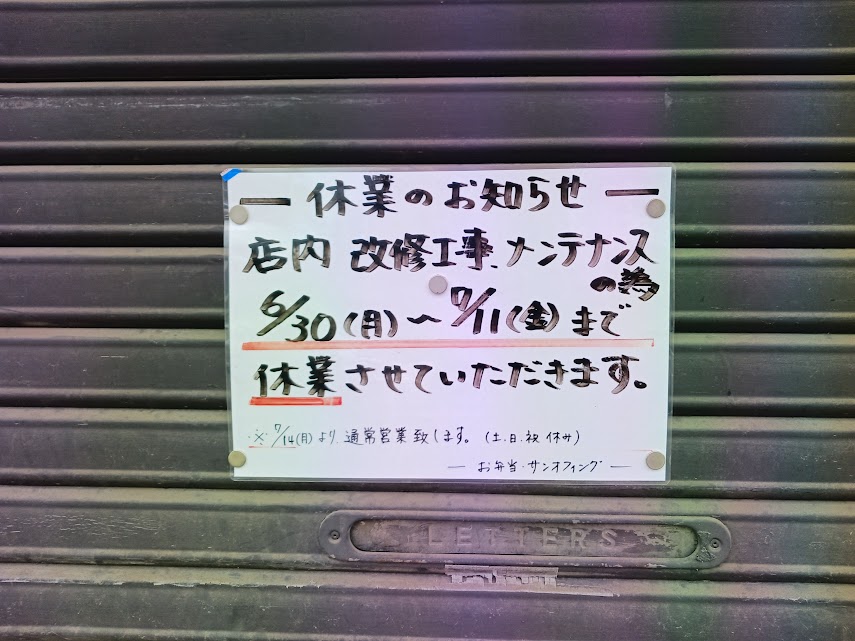 ー 休業のお知らせ ー
店内 改修工事、メンテナンス
の為
6/30(月)〜7/11(金)まで
休業させていただきます。
※ 7/14(月)より、通常営業致します。(土、日、祝 休み)
ー お弁当・サンオフィング ー
LETTERS